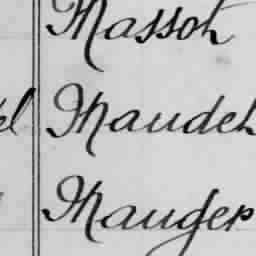 Massot
el Maudet
Mauger